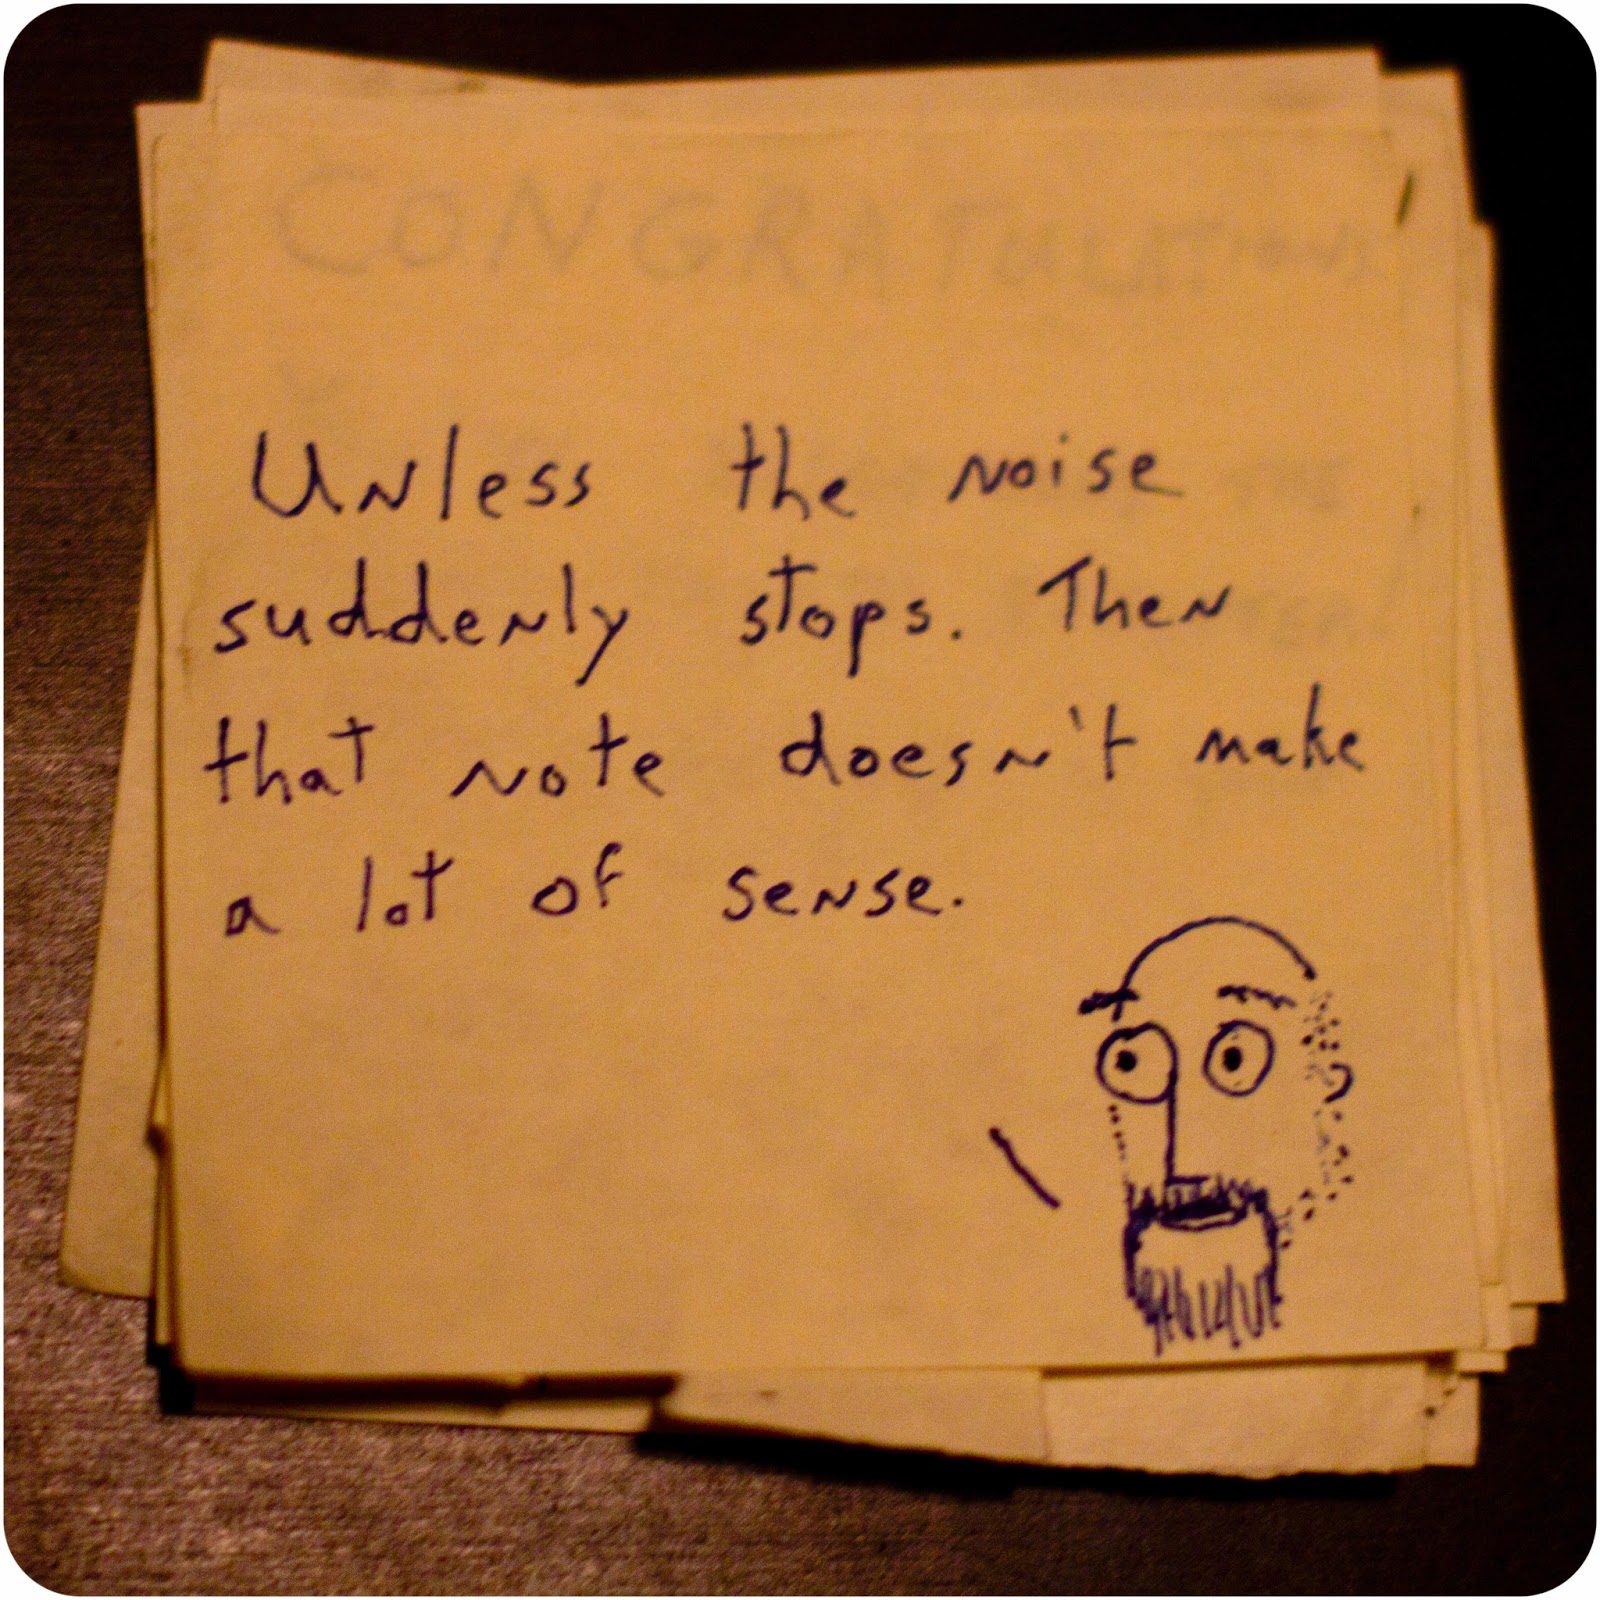 CONGRATULATIONS
Unless the noise
suddenly stops. Then
that note doesn't make
a lot of sense.